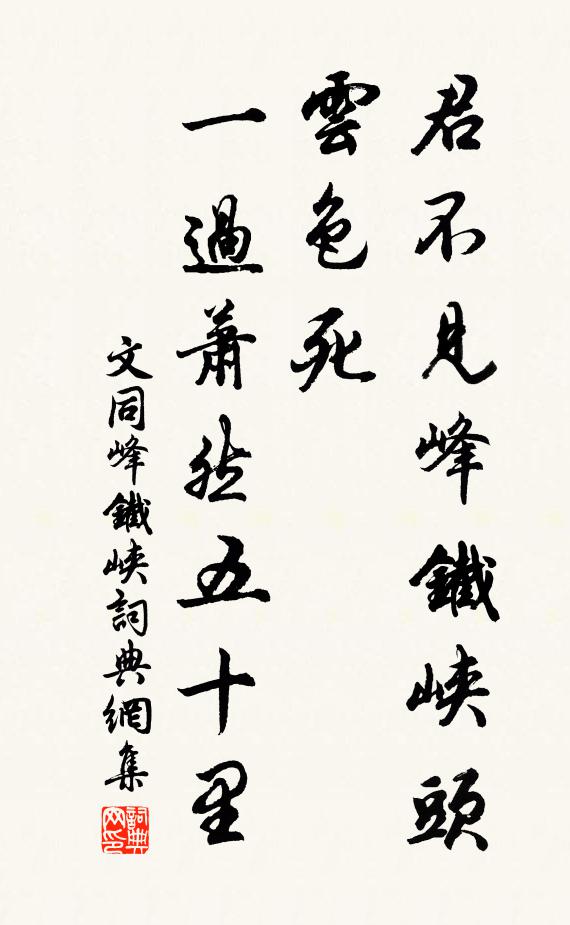 君不見峰鐵峽頭
雲色死
一過蕭然五十里
文同峰鐵峽詞典網集
詞典網印